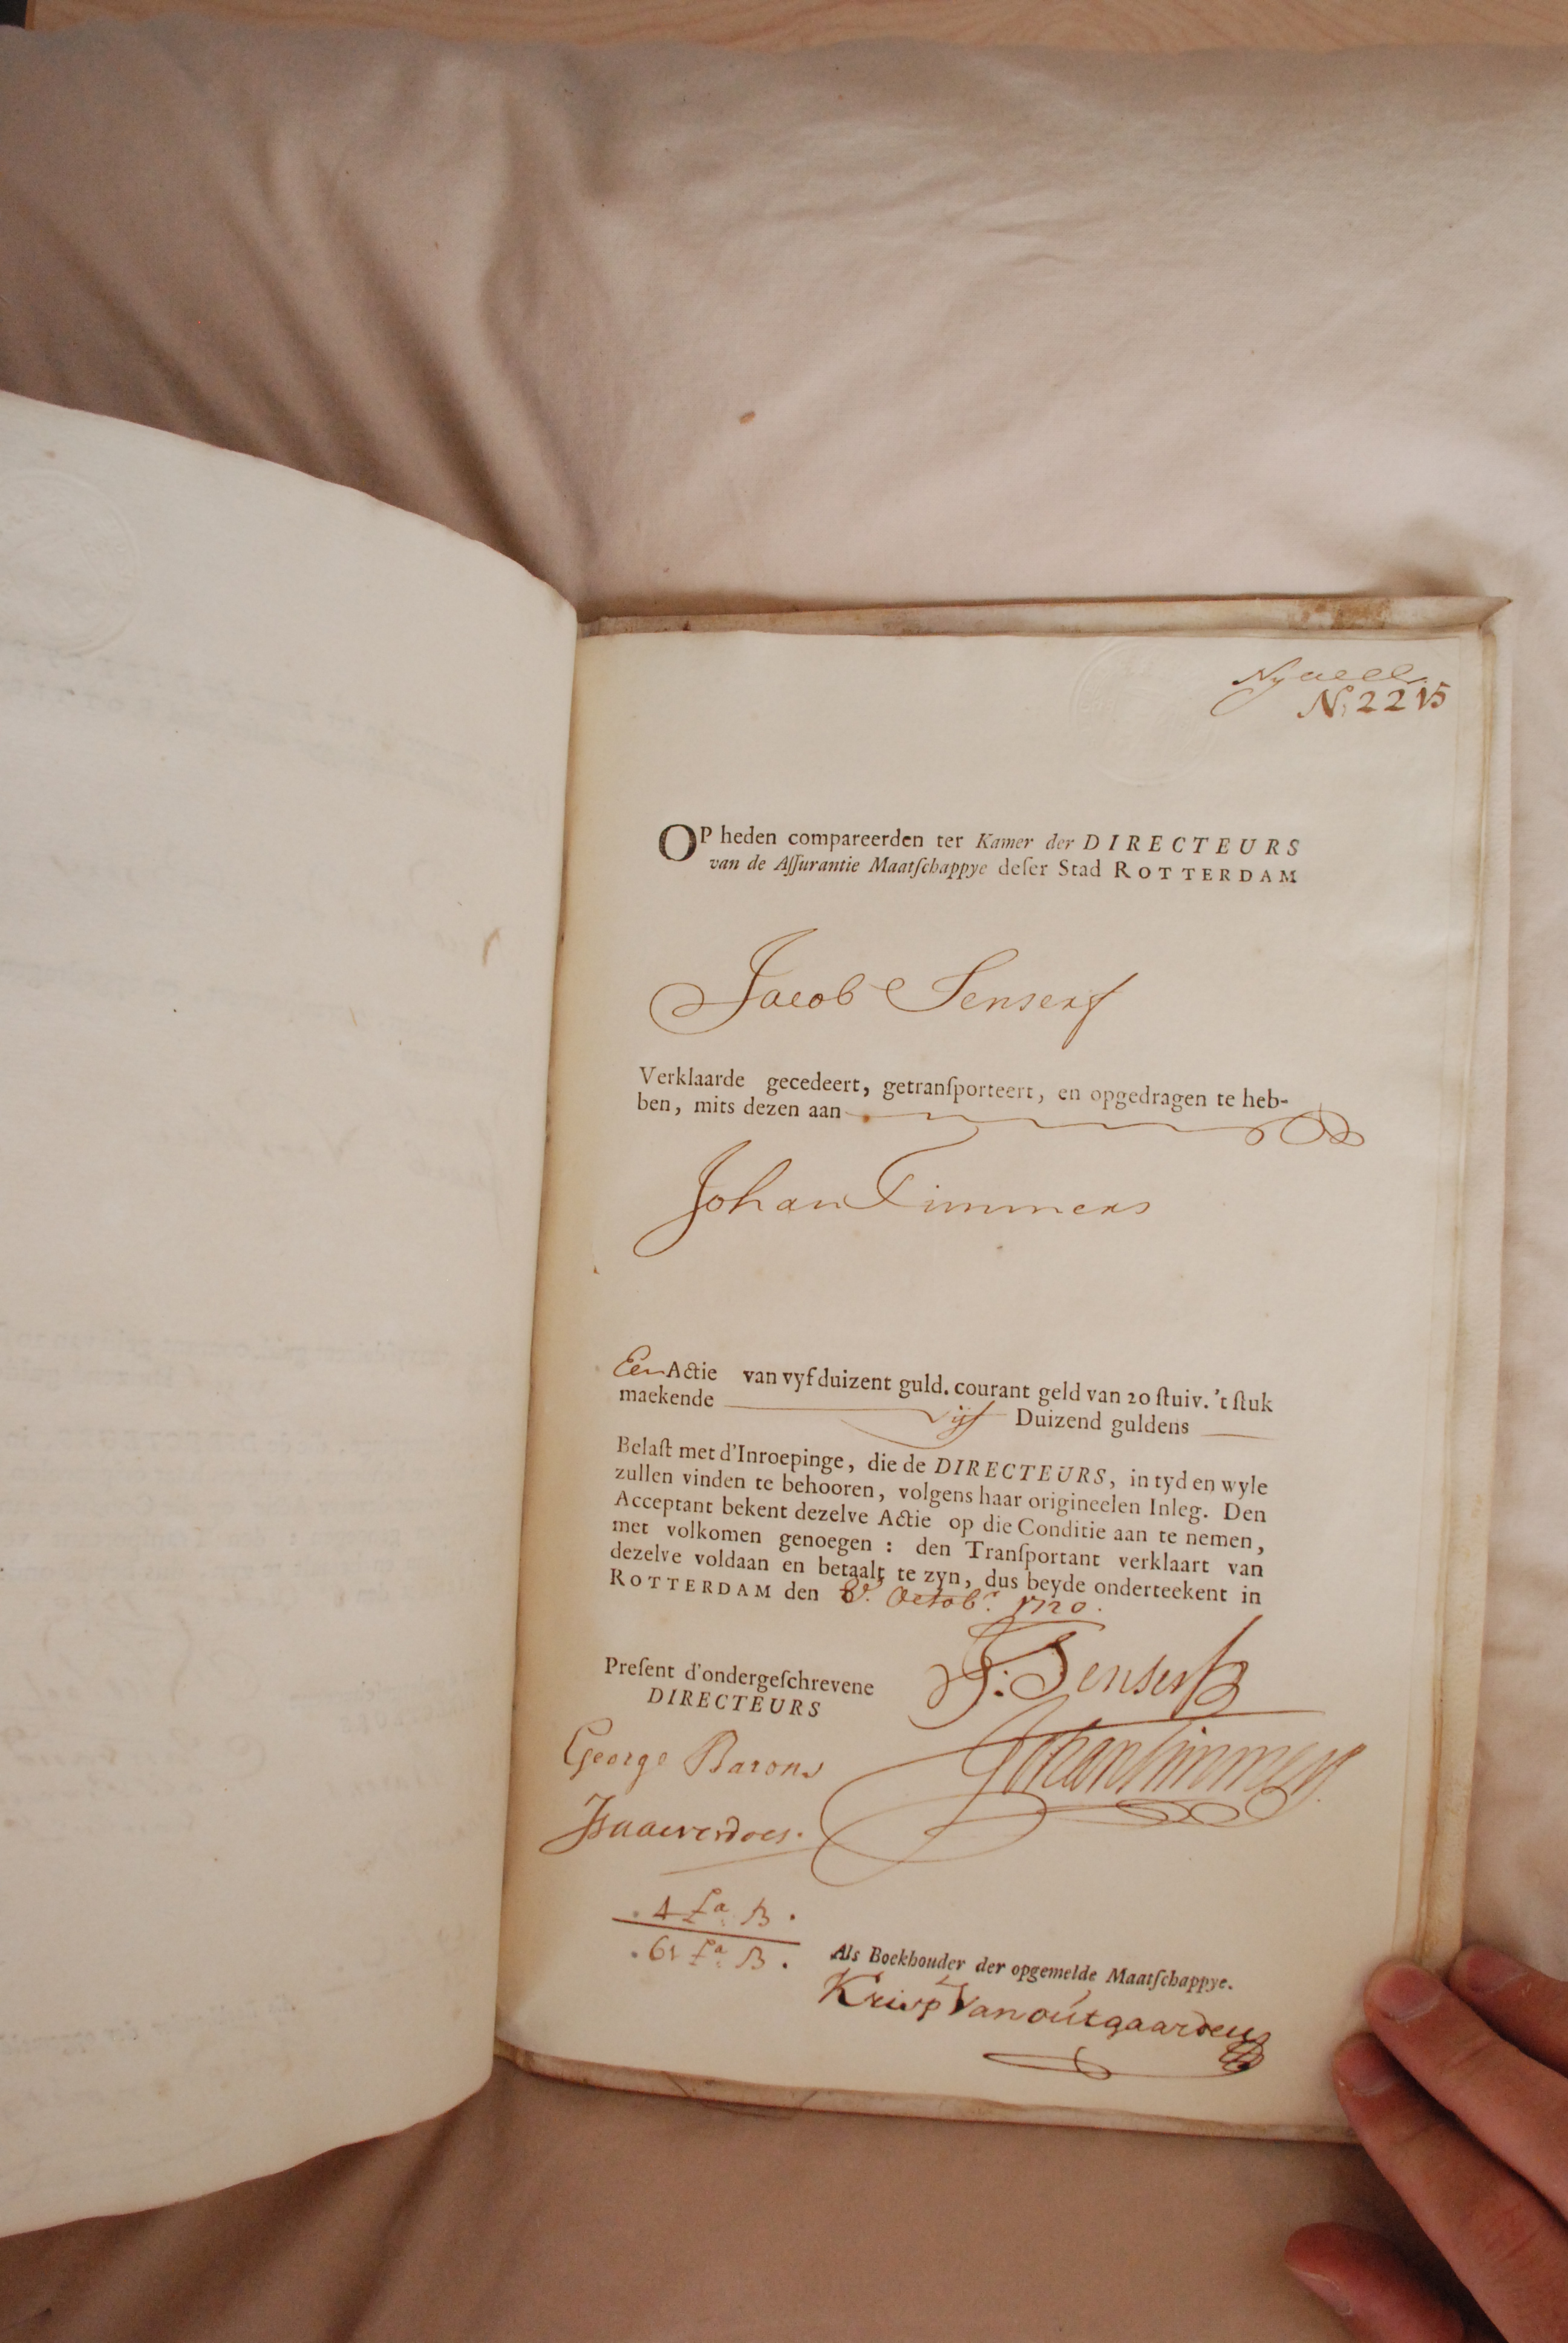 N: 2215
OP heden compareerden ter Kamer der DIRECTEURS
van de Aſſurantie Maatſchappye deſer Stad ROTTERDAM
Jacob Senserf
Verklaarde gecedeert, getranſporteert, en opgedragen te heb-
ben, mits dezen aan
Johan Timmers
Een Actie van vyf duizent guld. courant geld van 20 ſtuiv. 't ſtuk
maekende vijf Duizend guldens
Belaſt met d'Inroepinge, die de DIRECTEURS, in tyd en wyle
zullen vinden te behooren, volgens haar origineelen Inleg. Den
Acceptant bekent dezelve Actie op die Conditie aan te nemen,
met volkomen genoegen : den Tranſportant verklaart van
dezelve voldaan en betaalt te zyn, dus beyde onderteekent in
ROTTERDAM den 8e. Octobr. 1720.
J: Senserf
Preſent d'ondergeſchrevene
DIRECTEURS
George Barons
Johan Timmers
. 4 La B .
. 61 La B .
Als Boekhouder der opgemelde Maatſchappye.
Krisp Van outgaarden